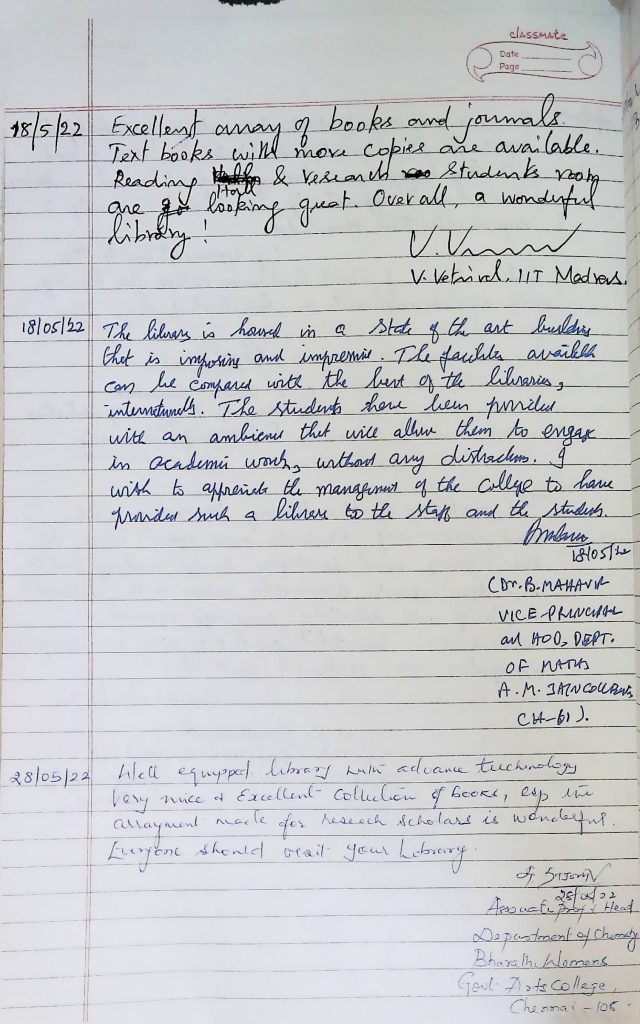 classmate
Date
Page
18/5/22 Excellent array of books and journals.
Text books with more copies are available.
Reading Hall & research students room
are looking great. Over all, a wonderful
library!
V. Vetrivel, IIT Madras.
18/05/22 The library is housed in a state of the art building
that is imposing and impressive. The facilities available
can be compared with the best of the libraries,
internationally. The students have been provided
with an ambience that will allow them to engage
in academic work, without any distractions. I
wish to appreciate the management of the college to have
provided such a library to the staff and the students.
18/05/22
(Dr. B. MAHAVIR
VICE-PRINCIPAL
and HOD, DEPT.
OF MATHS
A.M. JAIN COLLEGE,
CH-61).
28/05/22 Well equipped library with advance technology
Very nice & Excellent Collection of books, esp the
arrangement made for research scholars is wonderful.
Everyone should visit your Library.
28/05/22
Associate Prof & Head
Department of Chemistry
Bharathi Womens
Govt Arts College,
Chennai - 108.